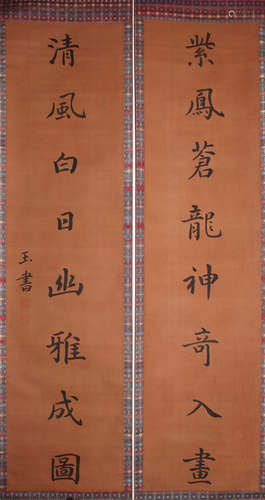 紫鳳蒼龍神奇入畫
清風白日幽雅成圖
玉書